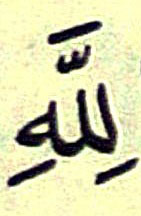 لِلَّهِ